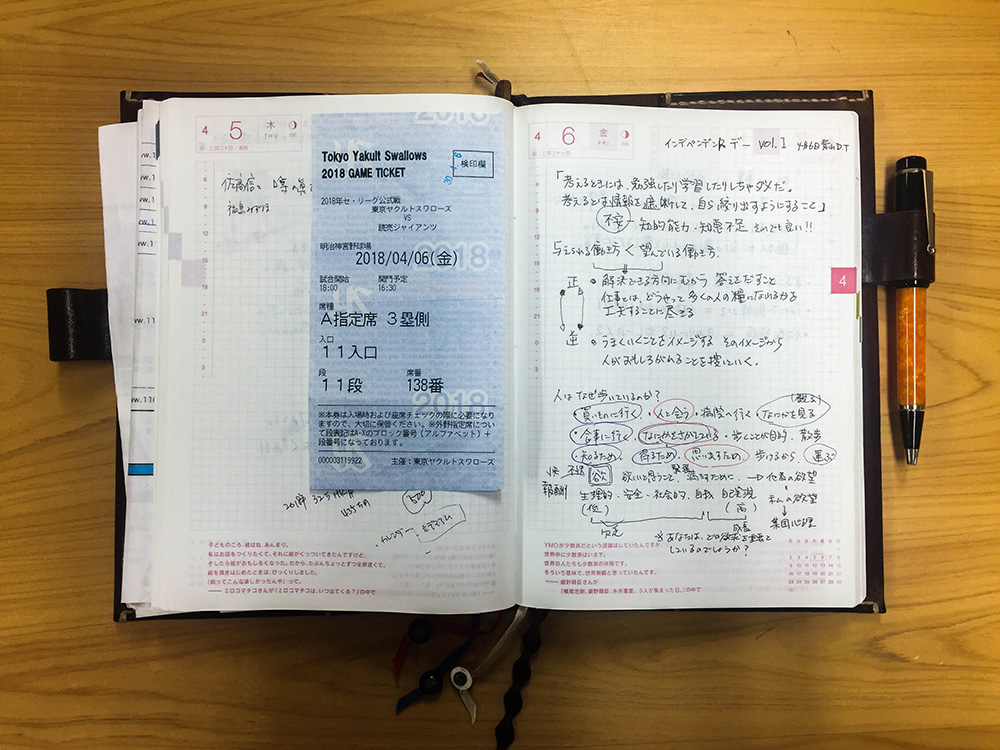 4 5 木 THU
Tokyo Yakult Swallows
2018 GAME TICKET
検印欄
2018年セ・リーグ公式戦
東京ヤクルトスワローズ
VS
読売ジャイアンツ
明治神宮野球場
2018/04/06(金)
試合開始 開門予定
18:00 16:30
席種
A指定席 3塁側
入口
11入口
段 席番
11段 138番
※本券は入場時および座席チェックの際に必要になり
ますので、大切に保管ください。※外野指定席につい
て段表記はA-Xのブロック番号(アルファベット)+
段番号になっております。
000003119922 主催:東京ヤクルトスワローズ
500
カレンダー
子どものころ、絵はね、あんまり。
私はお話をつくりたくて、それに絵がくっついてきたんですけど。
そしたら絵がおもしろくなった。だから、たぶんちょっとずつ全部遅くて、
絵を描きはじめたときは、びっくりしました。
「絵ってこんな楽しかったんや」って。
── ミロコマチコさんが『ミロコマチコは、いつ出てくる?』の中で
4 6 金 FRI
インデペンデントデー vol.1 4月6日
「考えるときには、勉強したり学習したりしちゃダメだ。
考えるとは情報を遮断して、自ら絞り出すようにすること」
知的能力・知恵不足 それでも良い!!
与えられる働き方 < 望んでいる働き方。
正 ○ 解決できる方向にむかう 答えをだすこと
仕事とは、どうやって多くの人の糧になりいるかを
工夫することに尽きる
逆 ○ うまくいくことをイメージする そのイメージから
人がおもしろがれることを捜していく。
4
人はなぜ歩いているのか?
(観る)
・買いものに行く ・人と会う ・病院へ行く ・なにかを見る
・仕事に行く ・なにかをさがしている ・歩くことが目的 ・散歩
・知るため ・得るため ・思い出すため ・歩けるから 運ぶ
快 不快 欲 欲しいと思うこと → 他者の欲望
報酬 生理的・安全・社会的・自我 自己実現 私の欲望
(低) (高) 集団心理
成長
※あなたは、どの欲求を重要と
しているのでしょうか?
YMOが少数派だという認識はしていたんですが、
世界中に少数派はいます。
世界の人たちも少数派の仲間です。
そういう意味で、世界制覇と思っていたんです。
── 細野晴臣さんが